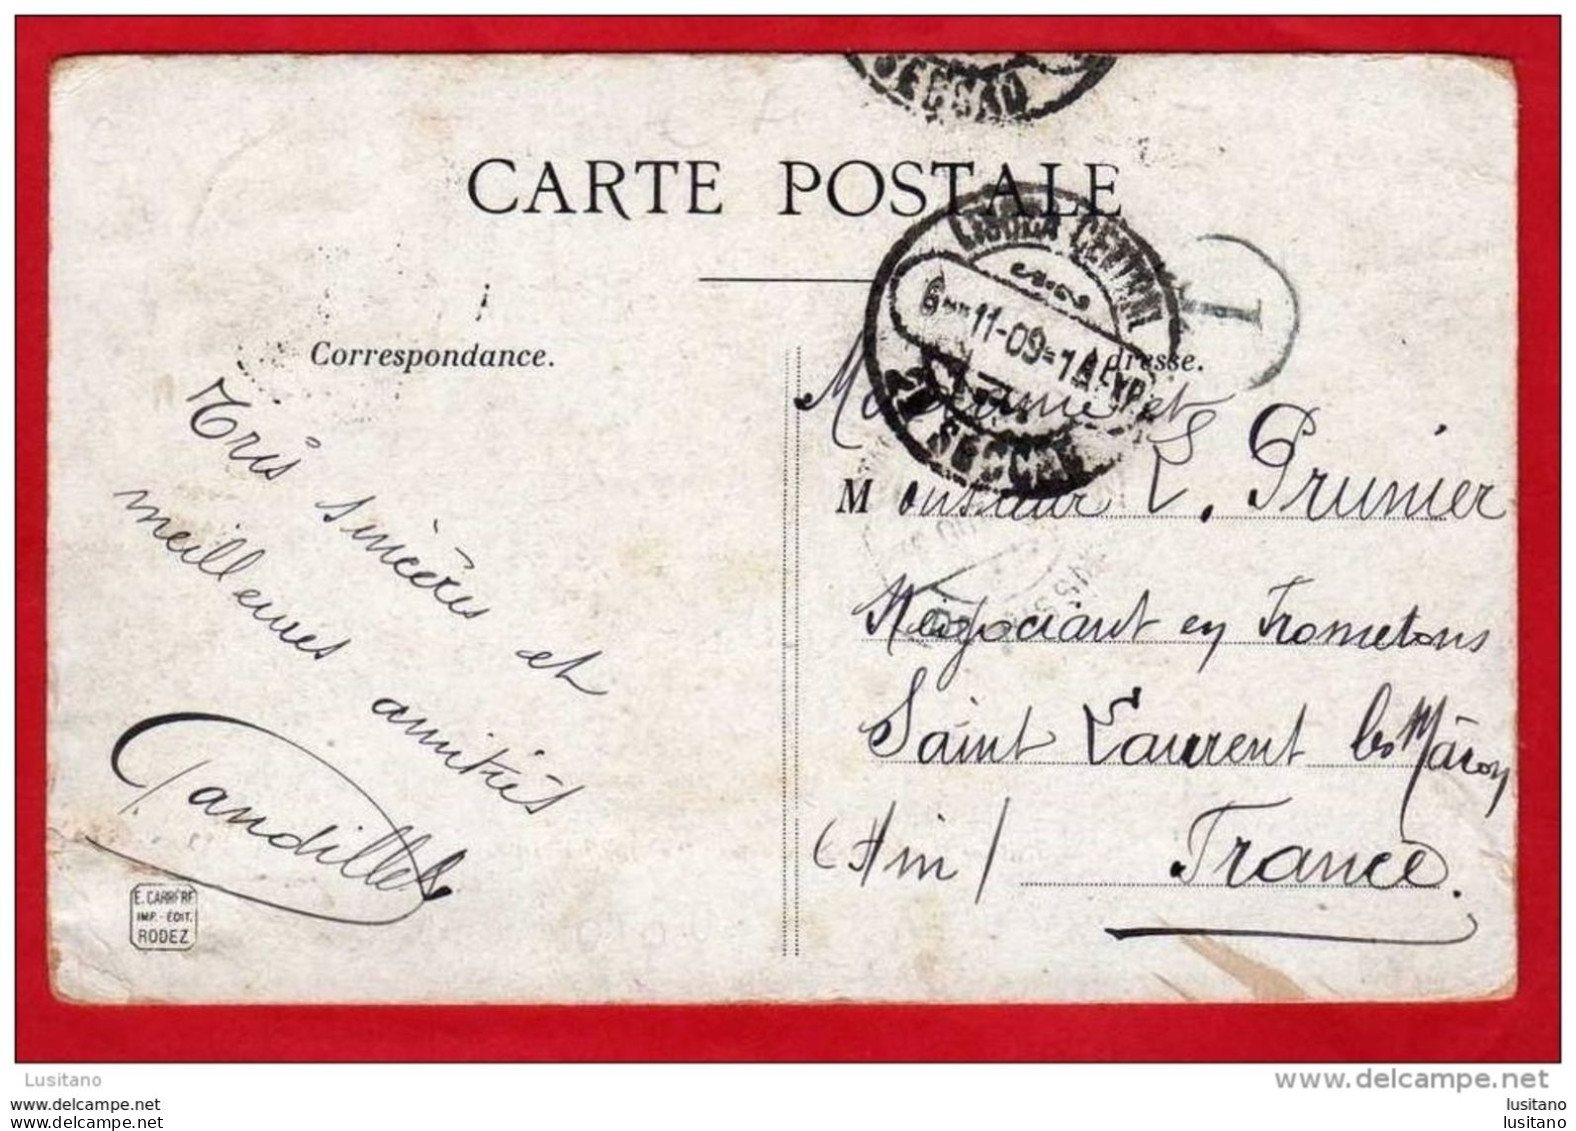 SECCAO
CARTE POSTALE
LISBOA CENTRAL
6-11-09=1
2ª SECCAO
T
Correspondance.
Adresse.
Très sincères et
meilleures amitiés
Madame et
Monsieur L. Prunier
Négociant en
Saint Laurent les Mâcon
(Ain) France.
E. CARRÈRE
IMP.-ÉDIT.
RODEZ
Lusitano
www.delcampe.net
lusitano
meilleures amitiés
lusitano
lusitano